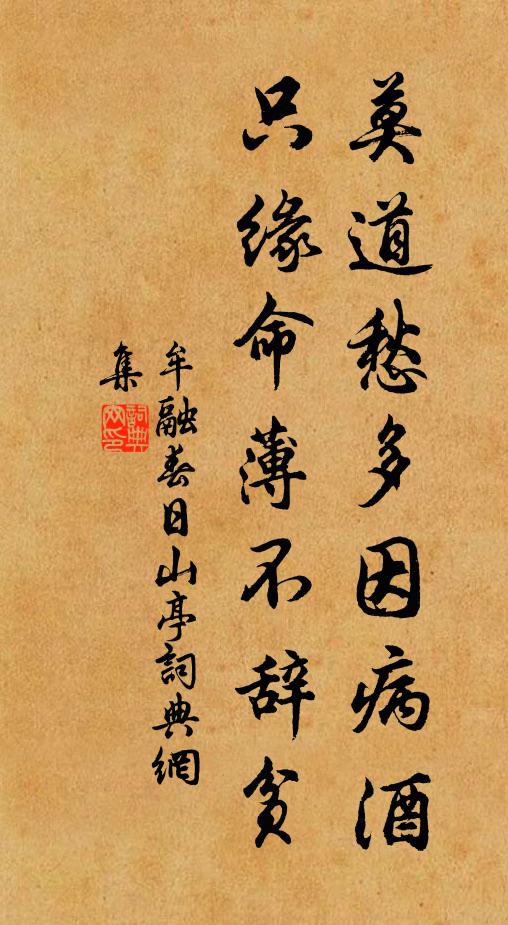 莫道愁多因病酒
只缘命薄不辞贫
牟融春日山亭詞典網
集
詞典網印